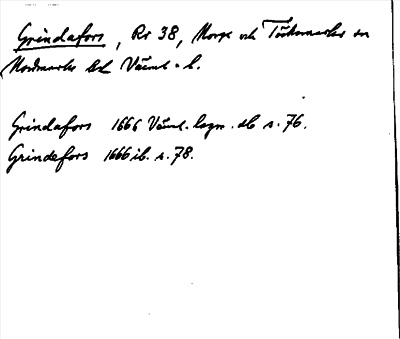 Grindafors, Rv 38, Norge och Töcksmarks sn
Nordmarks hd Värml. l.
Grindafors 1666 Värml. lagm. db s. 76.
Grindefors 1666 ib. s. 78.